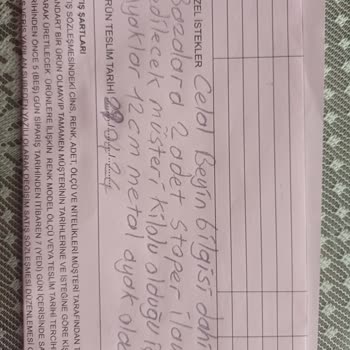 ZEL İSTEKLER Celal Beyin bilgisi dahi
bazalara 2 adet stoper ilav
edilecek müşteri kilolu olduğu i
ayaklar 12 cm metal ayak olac
ÜRÜN TESLİM TARİHİ
IŞ ŞARTLARI
IŞ SÖZLEŞMESİNDEKİ CİNS, RENK, ADET, ÖLÇÜ VE NİTELİKLERİ MÜŞTERİ TARAFINDAN T
NDART BİR ÜRÜN OLMAYIP TAMAMEN MÜŞTERİNİN TARİHLERİNE VE İSTEĞİNE GÖRE Kİ
ARAK ÜRETİLECEK ÜRÜNLERE İLİŞKİN RENK MODEL ÖLÇÜ VEYA TESLİM TARİHİ TERCİH
RİHİNDEN ÖNCE 5 (BEŞ) GÜN SİPARİŞ TARİHİNDEN İTİBAREN 7 (YEDİ) GÜN İÇERİSİNDE SA
YAZILI OLARAK DEĞİŞİM SATIŞ SÖZLEŞMESİ DÜZENLEMESİ